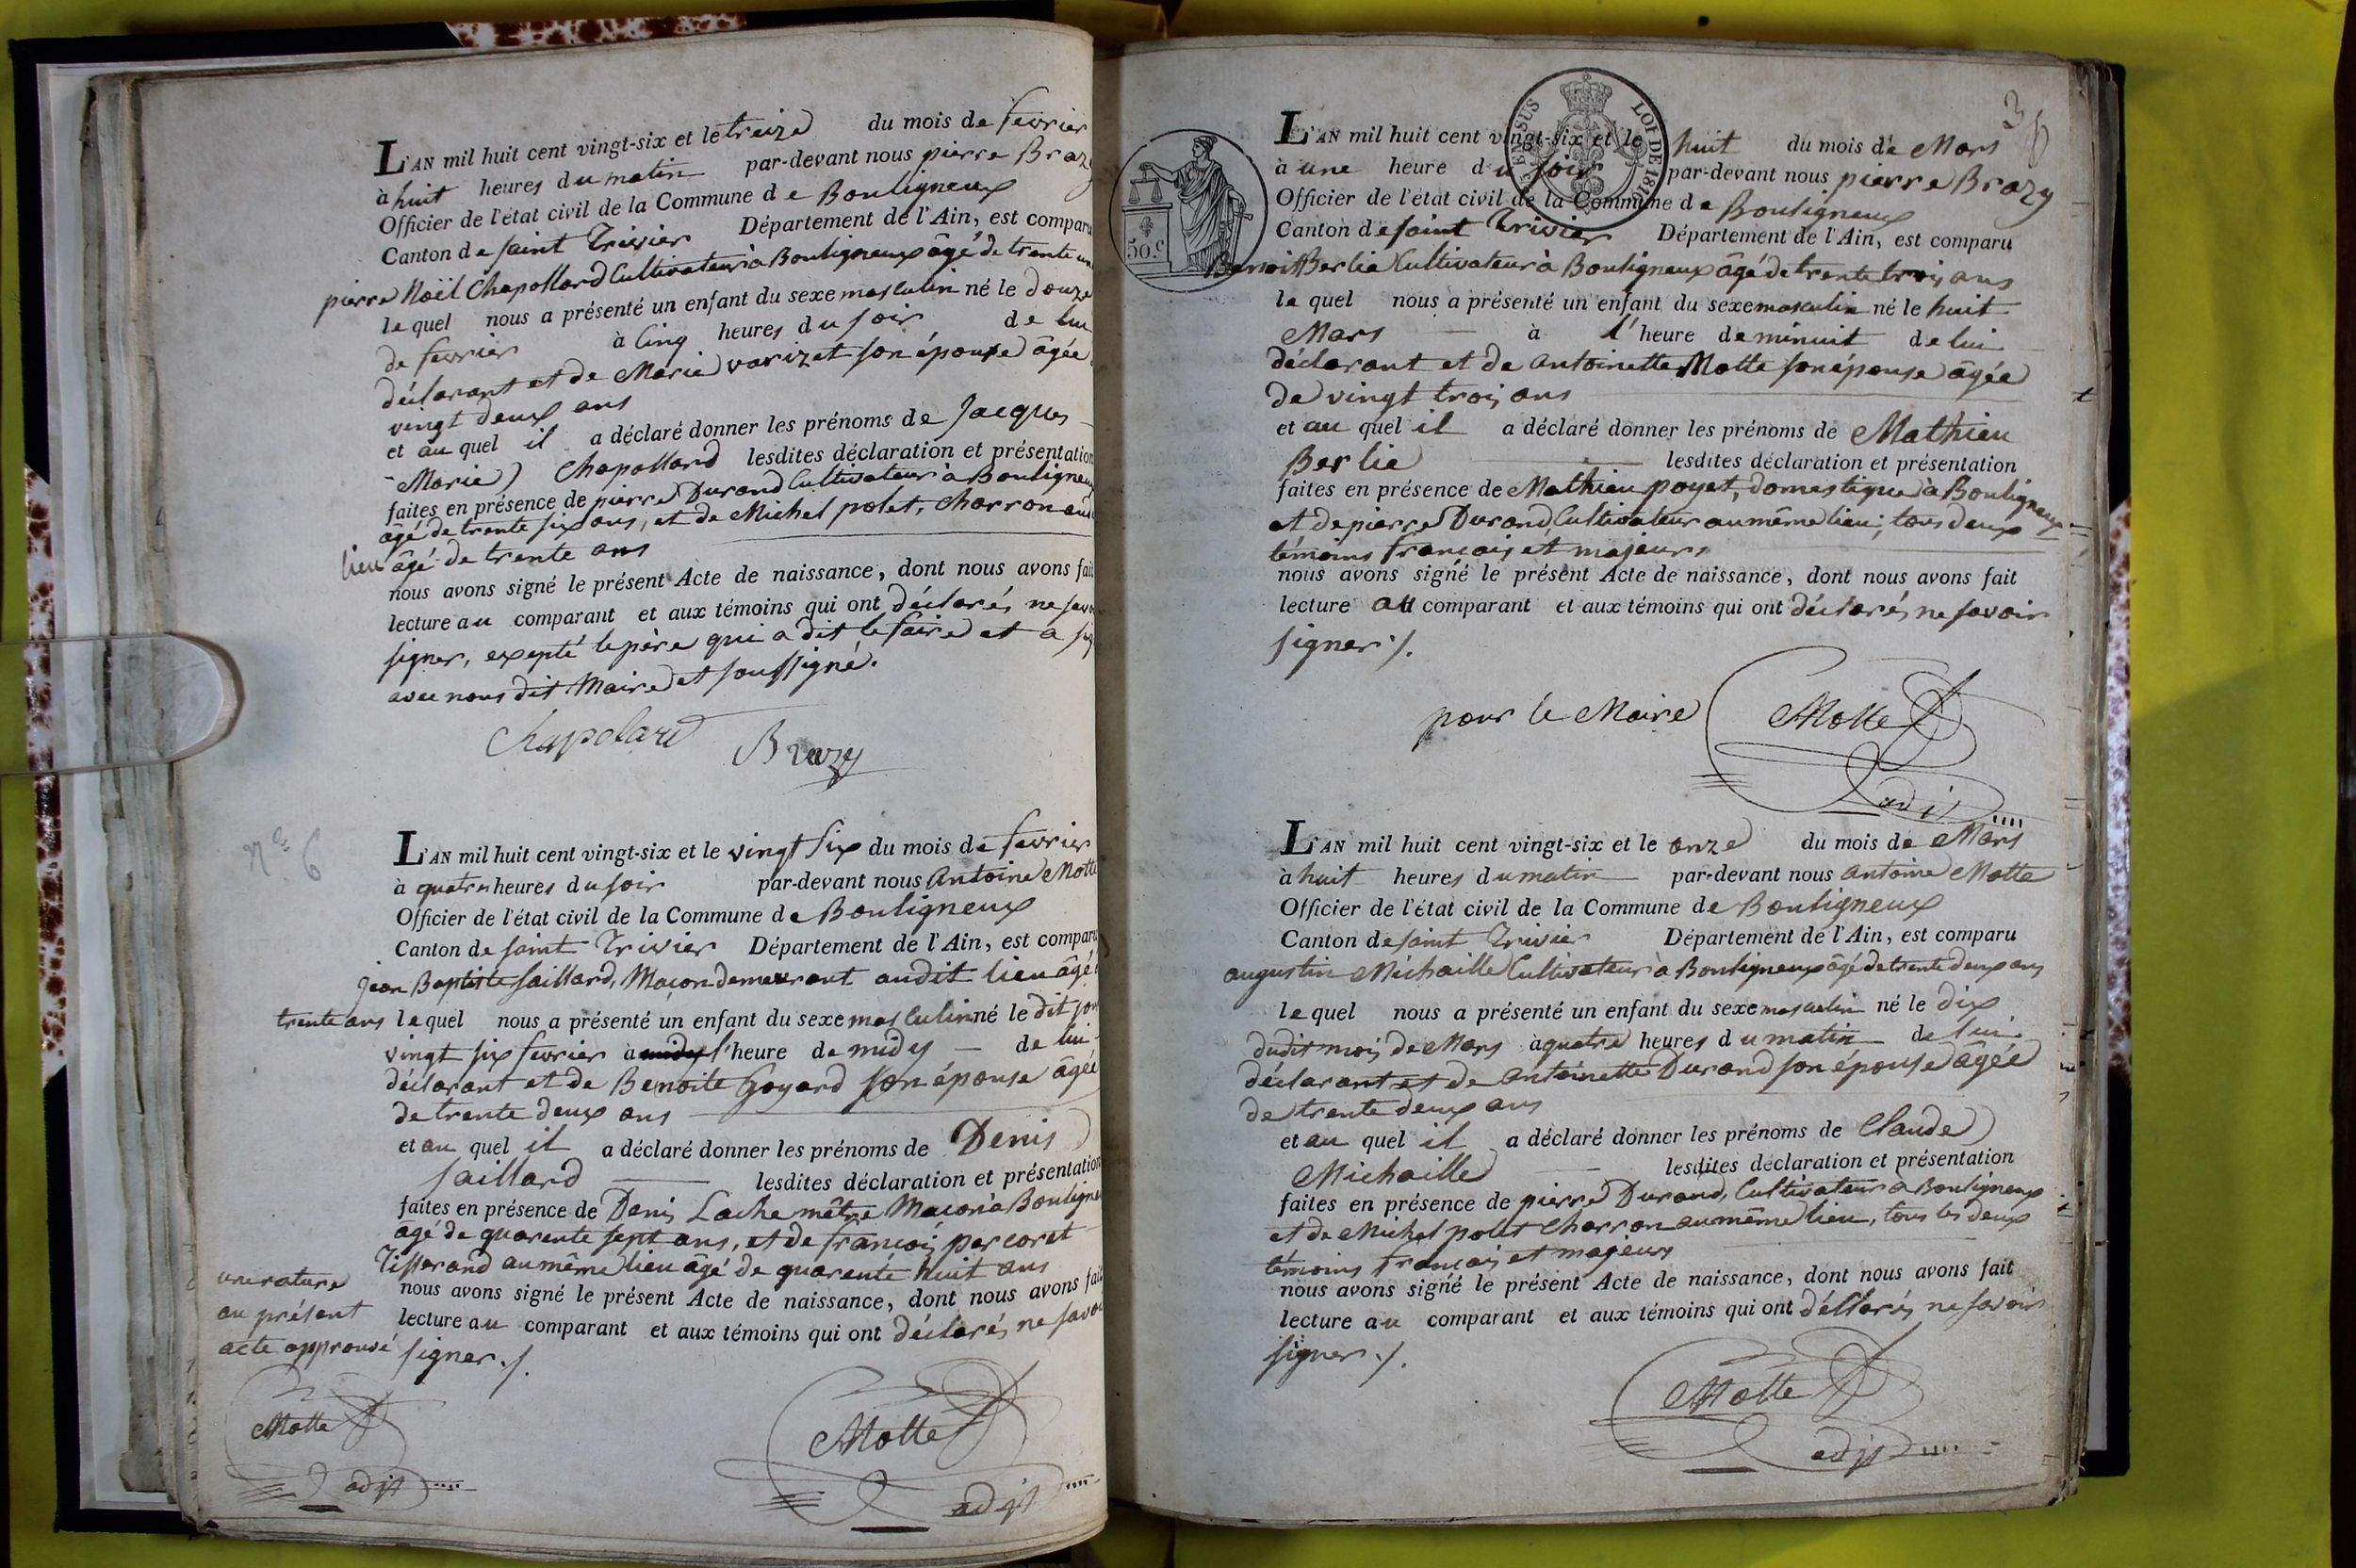 L'AN mil huit cent vingt-six et le treize du mois de fevrier
à huit heures du matin par-devant nous pierre Brazy
Officier de l'état civil de la Commune de Bouligneux
Canton de saint Trivier Département de l'Ain, est comparu
pierre Noël Chapollard Cultivateur à Bouligneux âgé de trente un
le quel nous a présenté un enfant du sexe masculin né le douze
de fevrier à Cinq heures du soir de lui
déclarant et de Marie varizet son épouse âgée
vingt deux ans
et au quel il a déclaré donner les prénoms de Jacques
Marie Chapollard lesdites déclaration et présentation
faites en présence de pierre Durand Cultivateur à Bouligneux
âgé de trente six ans, et de Michel polet, charron aud
lieu âgé de trente ans
nous avons signé le présent Acte de naissance, dont nous avons fait
lecture au comparant et aux témoins qui ont déclarés ne savoir
signer, expepté le père qui a dit le faire et a sig
avec nous dit Maire et soussigné.
Chapolard Brazy
N° 6
L'AN mil huit cent vingt-six et le vingt six du mois de fevrier
à quatre heures du soir par-devant nous Antoine Motte
Officier de l'état civil de la Commune de Bouligneux
Canton de saint Trivier Département de l'Ain, est comparu
Jean Baptiste Saillard, Maçon demeurant audit lieu âgé
trente ans le quel nous a présenté un enfant du sexe masculin né le dit jour
vingt six fevrier à midy l'heure de midy de lui
déclarant et de Benoite Goyard son épouse âgée
de trente deux ans
et au quel il a déclaré donner les prénoms de Denis
Saillard lesdites déclaration et présentation
faites en présence de Denis Lache mêtre Macon à Bouligneux
âgé de quarente sept ans, et de françois percoret
Tisserand au même lieu âgé de quarente huit ans
nous avons signé le présent Acte de naissance, dont nous avons fait
lecture au comparant et aux témoins qui ont déclarés ne savoir
signer ./.
une rature
au présent
acte approuvé
Motte adjt
Motte adjt
3
L'AN mil huit cent vingt-six et le huit du mois de Mars
LOI DE 1816
50 c
à une heure du soir par-devant nous pierre Brazy
Officier de l'état civil de la Commune de Bouligneux
Canton de saint Trivier Département de l'Ain, est comparu
Benoit Berlie Cultivateur à Bouligneux âgé de trente trois ans
le quel nous a présenté un enfant du sexe masculin né le huit
Mars à l'heure de minuit de lui
déclarant et de Antoinette Motte son épouse âgée
de vingt trois ans
et au quel il a déclaré donner les prénoms de Mathieu
Berlie lesdites déclaration et présentation
faites en présence de Mathieu poyet, domestique à Bouligneux
et de pierre Durand Cultivateur au même lieu; tous deux
témoins français et majeurs
nous avons signé le présent Acte de naissance, dont nous avons fait
lecture au comparant et aux témoins qui ont déclarés ne savoir
signer ./.
pour le Maire Motte
adjt
L'AN mil huit cent vingt-six et le onze du mois de Mars
à huit heures du matin par-devant nous Antoine Motte
Officier de l'état civil de la Commune de Bouligneux
Canton de saint Trivier Département de l'Ain, est comparu
augustin Michaille Cultivateur à Bouligneux âgé de trente deux ans
le quel nous a présenté un enfant du sexe masculin né le dix
dudit mois de Mars à quatre heures du matin de lui
déclarant et de Antoinette Durand son épouse âgée
de trente deux ans
et au quel il a déclaré donner les prénoms de Claude
Michaille lesdites déclaration et présentation
faites en présence de pierre Durand, Cultivateur à Bouligneux
et de Michel polet charron au même lieu, tous les deux
témoins français et majeurs
nous avons signé le présent Acte de naissance, dont nous avons fait
lecture au comparant et aux témoins qui ont déclarés ne savoir
signer ./.
Motte
adjt